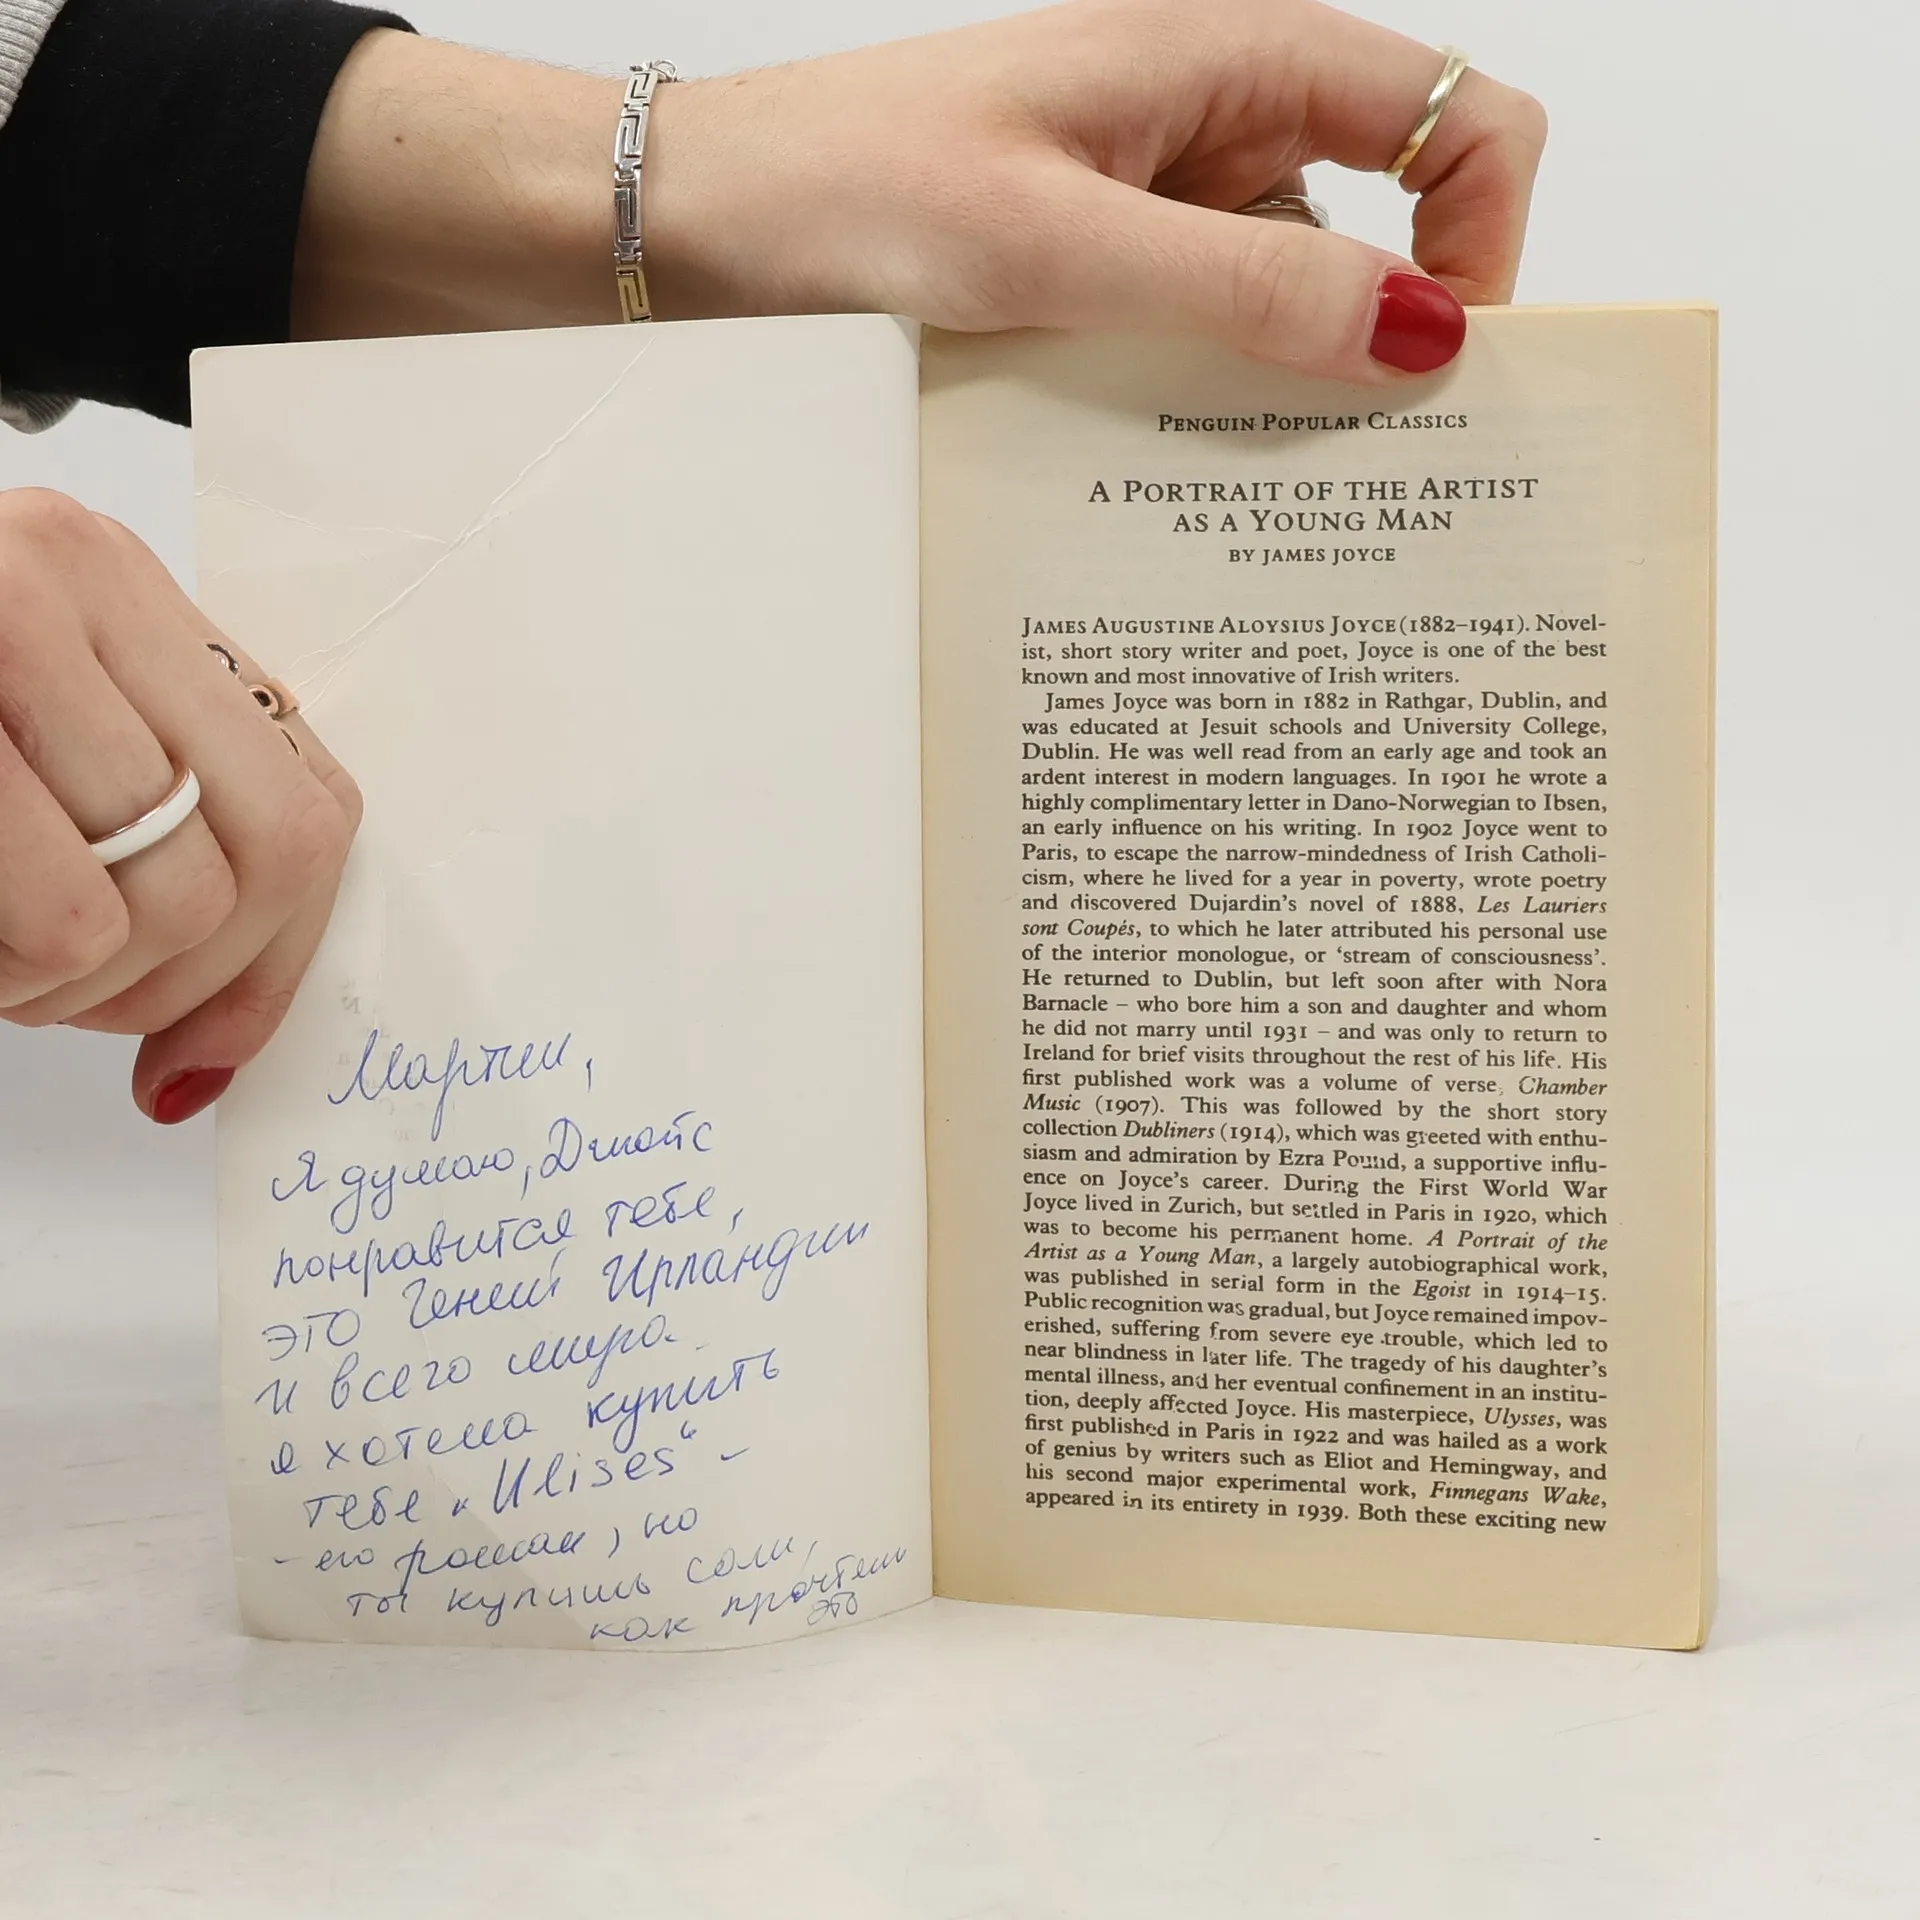 Мартин,
Я думаю, Джойс
понравится тебе,
это гений Ирландии
и всего мира.
я хотела купить
тебе „Ulises“ –
- его роман, но
ты купишь сам,
как прочтешь
это
PENGUIN POPULAR CLASSICS
A PORTRAIT OF THE ARTIST
AS A YOUNG MAN
BY JAMES JOYCE
JAMES AUGUSTINE ALOYSIUS JOYCE (1882–1941). Novel-
ist, short story writer and poet, Joyce is one of the best
known and most innovative of Irish writers.
James Joyce was born in 1882 in Rathgar, Dublin, and
was educated at Jesuit schools and University College,
Dublin. He was well read from an early age and took an
ardent interest in modern languages. In 1901 he wrote a
highly complimentary letter in Dano-Norwegian to Ibsen,
an early influence on his writing. In 1902 Joyce went to
Paris, to escape the narrow-mindedness of Irish Catholi-
cism, where he lived for a year in poverty, wrote poetry
and discovered Dujardin's novel of 1888, Les Lauriers
sont Coupés, to which he later attributed his personal use
of the interior monologue, or ‘stream of consciousness’.
He returned to Dublin, but left soon after with Nora
Barnacle – who bore him a son and daughter and whom
he did not marry until 1931 – and was only to return to
Ireland for brief visits throughout the rest of his life. His
first published work was a volume of verse, Chamber
Music (1907). This was followed by the short story
collection Dubliners (1914), which was greeted with enthu-
siasm and admiration by Ezra Pound, a supportive influ-
ence on Joyce's career. During the First World War
Joyce lived in Zurich, but settled in Paris in 1920, which
was to become his permanent home. A Portrait of the
Artist as a Young Man, a largely autobiographical work,
was published in serial form in the Egoist in 1914–15.
Public recognition was gradual, but Joyce remained impov-
erished, suffering from severe eye trouble, which led to
near blindness in later life. The tragedy of his daughter's
mental illness, and her eventual confinement in an institu-
tion, deeply affected Joyce. His masterpiece, Ulysses, was
first published in Paris in 1922 and was hailed as a work
of genius by writers such as Eliot and Hemingway, and
his second major experimental work, Finnegans Wake,
appeared in its entirety in 1939. Both these exciting new